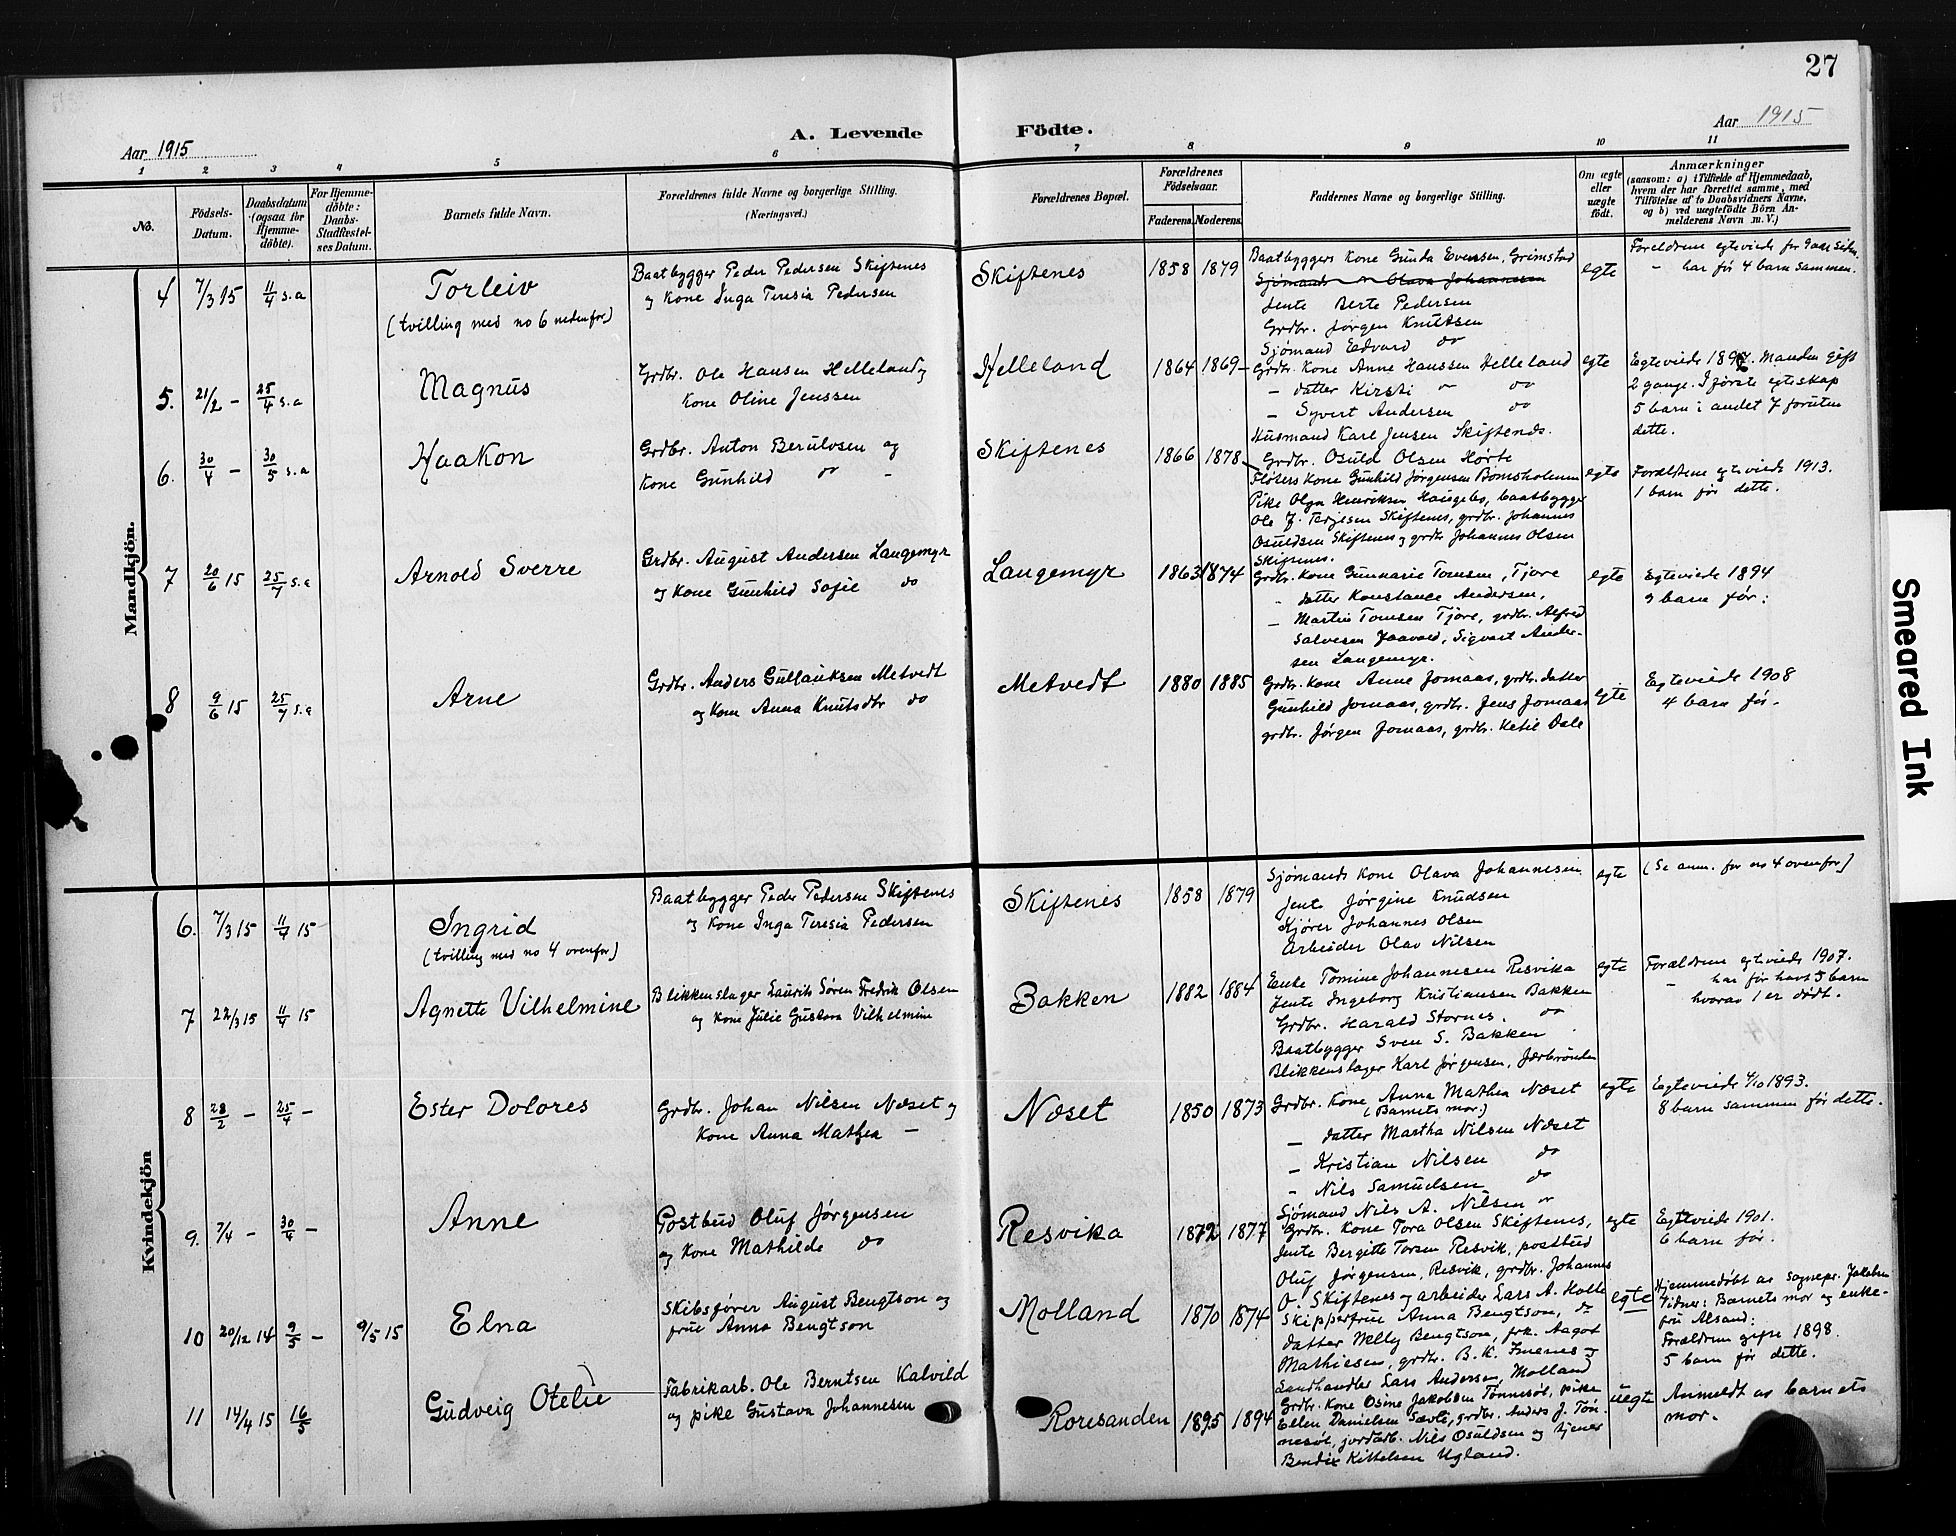 27
Aar 1915
A. Levende Födte.
Aar 1915
1 2 3 4 5 6 7 8 9 10 11
No.
Födsels-
Datum.
Daabsdatum
(ogsaa for
Hjemme-
döbte).
For Hjemme-
döbte:
Daabs-
Stadfæstel-
ses Datum.
Barnets fulde Navn.
Forældrenes fulde Navne og borgerlige Stilling.
(Næringsvei.)
Forældrenes Bopæl.
Forældrenes
Födselsaar.
Faderens. Moderens.
Faddernes Navne og borgerlige Stilling.
Om ægte
eller
uægte
födt.
Anmærkninger
(saasom: a) i Tilfælde af Hjemmedaab,
hvem der har forrettet samme, med
Tilföielse af to Daabsvidners Navne,
og b) ved uægtefödte Börn An-
melderens Navn m. V.)
Mandkjön.
4 7/3 15 11/4 s.a
Torleiv
(tvilling med no 6 nedenfor)
Baatbygger Peder Pedersen Skiftenes
og Kone Inga Teresia Pedersen
Skiftenes
1858 1879
Baatbyggers Kone Gunda Evensen, Grimstad
Sjömands " Olava Johannesen
Jente Berte Pedersen
Grdbr. Jørgen Knutsen
Sjömand Edvard do
egte
Foreldrene egteviede for 9 aar siden
- har før 4 barn sammen.
5. 21/2 - 25/4 s.a
Magnus
Grdbr. Ole Hansen Helleland og
Kone Oline Jenssen
Helleland
1864 1869
Grdbr. Kone Anne Hanssen Helleland
- datter Kirsti " do
- Syvert Andersen do
Husmand Karl Jensen Skiftenes.
Grdbr. Osuld Olsen Hørte
egte
Egteviede 1897. Manden gift
2 gange. I første egteskap
5 barn i andet 7 foruten
dette.
6. 30/4 - 30/5 s.a
Haakon
Grdbr. Anton Berulvsen og
Kone Gunhild do -
Skiftenes
1866 1878
Fløters Kone Gunhild Jørgensen Bomsholmen
Pike Olga Henriksen Haugebo, baatbygger
Ole J. Terjesen Skiftenes, grdbr. Johannes
Osuldsen Skiftenes og grdbr Johannes Olsen
Skiftenes.
egte
Forældrene egteviede 1913.
1 barn før dette.
7 20/6 15 25/7 s.a
Arnold Sverre
Grdbr. August Andersen Langemyr
og Kone Gunhild Sofie do
Langemyr
1863 1874
Grdbr. Kone Gunnarie Tomsen, Tjore
- datter Konstance Andersen,
- Martin Tomsen Tjore, grdbr. Alfred
Salvesen Jaavold, Sigvart Ander-
sen Langemyr.
egte
Egteviede 1894
9 barn før:
8 9/6 15 25/7 s.a
Arne
Grdbr. Anders Gullauksen Metvedt
og Kone Anna Knutsdtr do
Metvedt
1880 1885
Grdbr. Kone Anne Jomaas, grdbr. datter
Gunhild Jomaas, grdbr. Jens Jomaas
grdbr. Jørgen Jomaas, grdbr. Ketil Dale
egte
Egteviede 1908
4 barn før.
Kvindekjön
6. 7/3 15 11/4 15
Ingrid
(tvilling med no 4 ovenfor)
Baatbygger Peder Pedersen Skiftenes
og Kone Inga Teresia Pedersen
Skiftenes
1858 1879
Sjømands Kone Olava Johannesen
Jente Jørgine Knudsen
Kjører Johannes Olsen
Arbeider Olav Nilsen
egte
(Se anm. for no 4 ovenfor)
7 22/3 15 11/4 15
Agnette Vilhelmine
Blikkenslager Laurits Søren Fredrik Olsen
og Kone Julie Gustava Vilhelmine
Bakken
1882 1884
Enke Tomine Johannesen Resvika
Jente Ingeborg Kristiansen Bakken
Grdbr. Harald Stornes. do
Baatbygger Sven S. Bakken
Blikkenslager Karl Jørgensen,
egte
Forældrene egteviede 1907.
- har før havt 5 barn
hvorav 1 er dødt.
8 28/2 - 25/4 -
Ester Dolores
Grdbr. Johan Nilsen Næset og
Kone Anna Mathea -
Næset
1850 1873
Grdbr. Kone Anna Mathea Næset
(Barnets mor.)
- datter Martha Nilsen Næset
- Kristian Nilsen do
- Nils Samuelsen do
Sjømand Nils A. Nilsen "
egte
Egteviede 4/10 1893.
8 barn sammen før dette.
9. 7/4 - 30/4 -
Anne
Postbud Oluf Jørgensen
og Kone Mathilde do
Resvika
1872 1877
Grdbr. Kone Tora Olsen Skiftenes,
Jente Bergitte Torsen Resvik, postbud
Oluf Jørgensen, Resvik, grdbr. Johannes
O. Skiftenes og arbeider Lars A. Holte
egte
Egteviede 1901.
6 barn før.
10 20/12 14 9/5 - 9/5 15
Elna
Skibsfører August Bengtson og
frue Anna Bengtson
Molland
1870 1874
Skipperfrue Anna Bengtson, do
datter Nelly Bengtson, frk. Aagot
Mathiesen, grdbr. B. K. og
Landhandler Lars Andersen, Molland
egte
Hjemmedøbt av sognepr. Jakobsen
Vidner: Barnets mor og enke-
fru Alsand:
Forældrene gifte 1898.
5 barn før dette.
11 14/4 15 16/5
Gudveig Otelie
Fabrikarb. Ole Berntsen Kalvild
og pike Gustava Johannesen
Roresanden
1895 1894
Grdbr. Kone Osine Jakobsen Tønnesøl, pike
Ellen Danielsen Sævle, grdbr. Anders J. Tøn-
nesøl, jordarb. Nils Osuldsen og tjener
Bendix Kittelsen Ugland.
uegte
Anmeldt av barnets
mor.
Smeared Ink